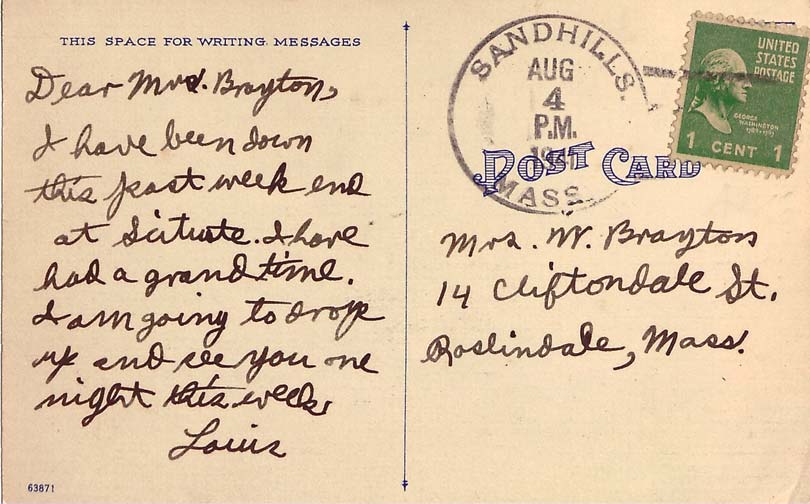 THIS SPACE FOR WRITING MESSAGES
Dear Mrs. Brayton,
I have been down
this past week end
at Scituate. I have
had a grand time.
I am going to drop
up and see you one
night this week.
Louis
63871
SANDHILLS.
AUG
4
P.M.
MASS.
UNITED
STATES
POSTAGE
GEORGE
WASHINGTON
1789-1797
1 CENT 1
POST CARD
Mrs. W. Brayton
14 Cliftondale St.
Roslindale, Mass.